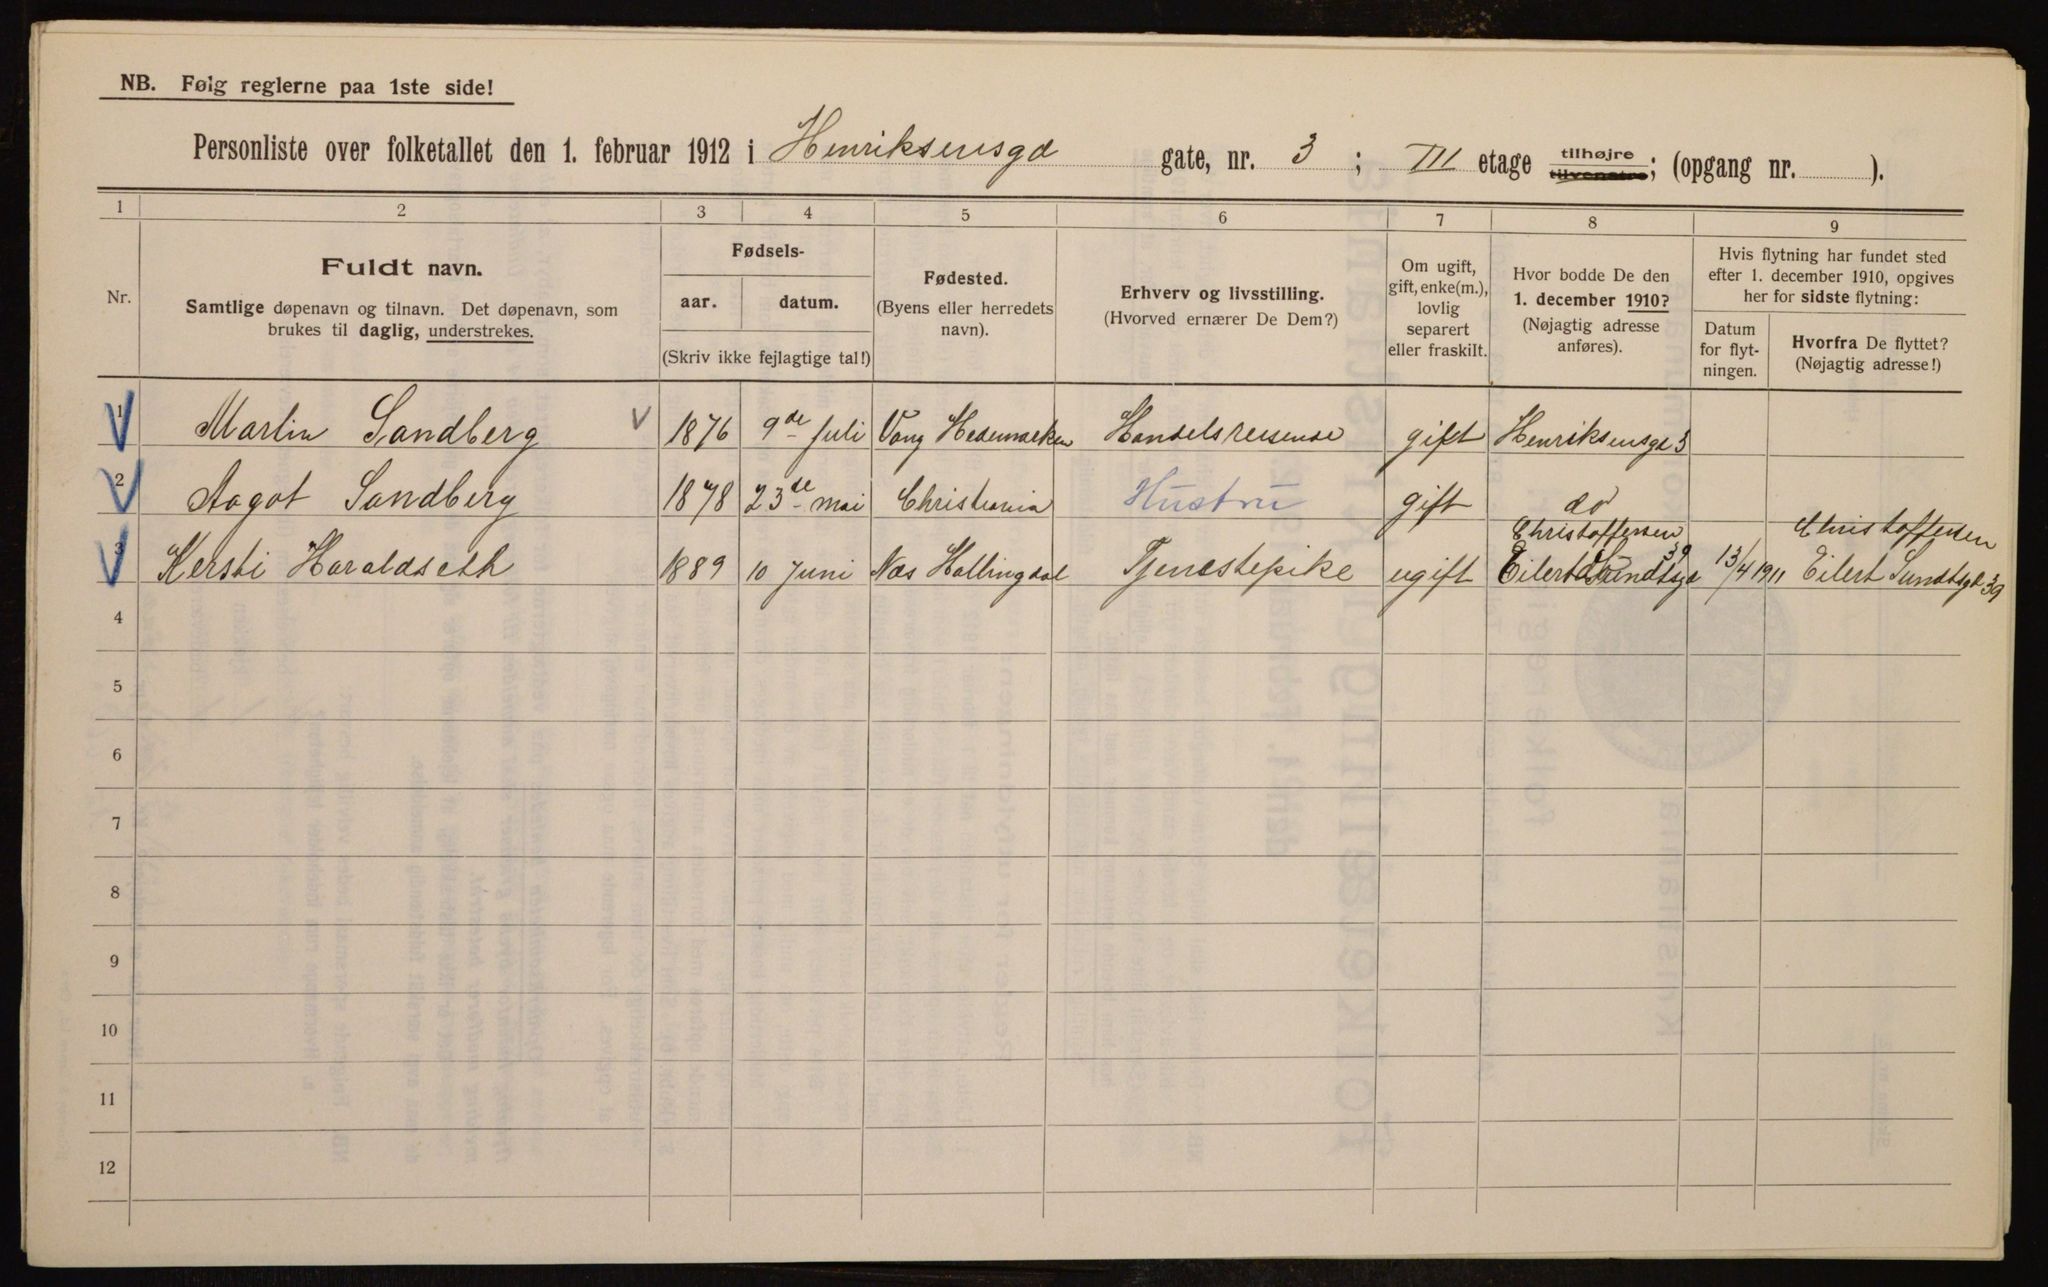 NB. Følg reglerne paa 1ste side!
Personliste over folketallet den 1. februar 1912 i Henriksensgd gate, nr. 3 ; III etage tilhøjre tilvenstre; (opgang nr. ).
1 2 3 4 5 6 7 8 9
Nr.
Fuldt navn.
Samtlige døpenavn og tilnavn. Det døpenavn, som
brukes til daglig, understrekes.
Fødsels-
aar. datum.
(Skriv ikke fejlagtige tal!)
Fødested.
(Byens eller herredets
navn).
Erhverv og livsstilling.
(Hvorved ernærer De Dem?)
Om ugift,
gift, enke(m.),
lovlig
separert
eller fraskilt.
Hvor bodde De den
1. december 1910?
(Nøjagtig adresse
anføres).
Hvis flytning har fundet sted
efter 1. december 1910, opgives
her for sidste flytning:
Datum
for flyt-
ningen.
Hvorfra De flyttet?
(Nøjagtig adresse!)
1 Martin Sandberg V 1876 9de Juli Vang Hedemarken Handelsreisende gift Henriksensgd 3
2 Aagot Sandberg 1878 23de mai Christiania Hustru gift do
Christoffersen Christoffersen
3 Kersti Haraldseth 1889 10 Juni Næs Hallingdal Tjenestepike ugift Eilert Sundtsgd 39 13/4 1911 Eilert Sundtsgd 39
4
5
6
7
8
9
10
11
12